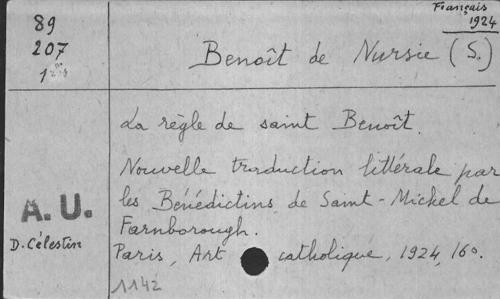 Français
1924
89
207
Benoît de Nursie (S.)
La règle de saint Benoît.
Nouvelle traduction littérale par
les Bénédictins de Saint-Michel de
Farnborough.
A. U.
D. Célestin
Paris, Art catholique, 1924, 16o.
1142